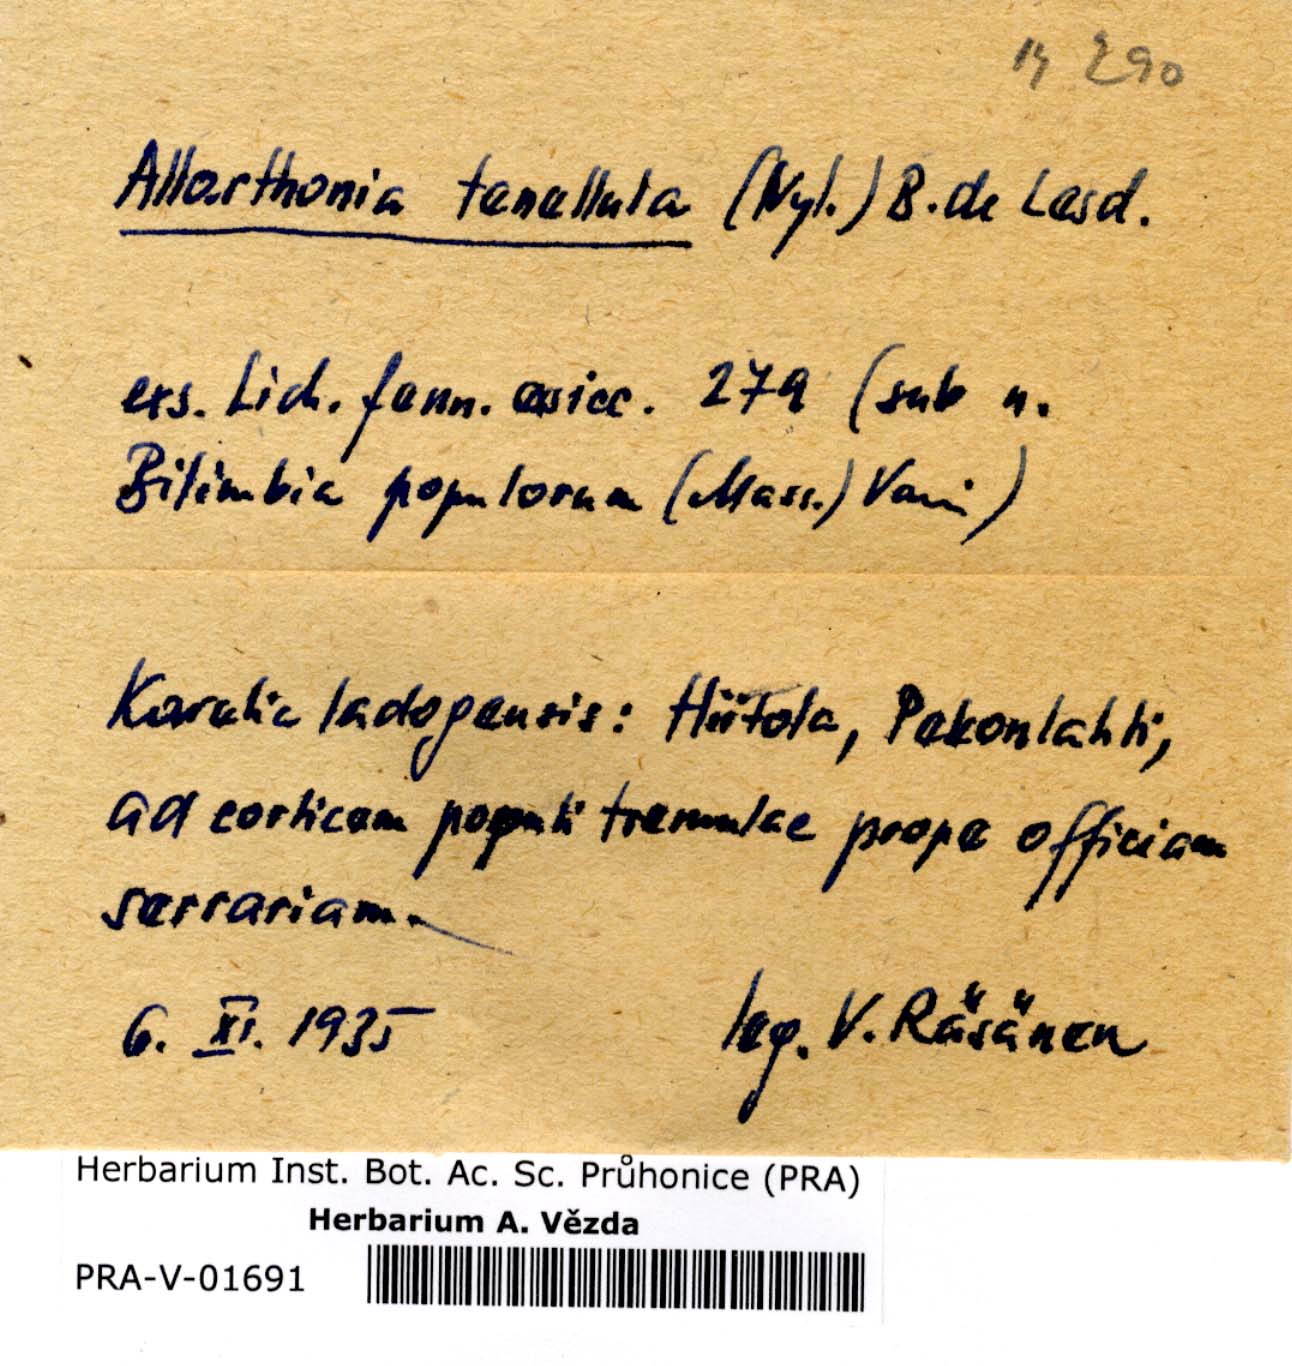 290
Allarthonia tenellula (Nyl.) B. de Lesd.
exs. Lich. fenn. exsicc. 279 (sub n.
Bilimbia populorum (Mass.) Vain)
Karelia ladogensis: Hiitola, Pekonlahti,
ad corticem populi tremulae prope officiam
serrariam.
6. XI. 1935
leg. V. Räsänen
Herbarium Inst. Bot. Ac. Sc. Průhonice (PRA)
Herbarium A. Vězda
PRA-V-01691